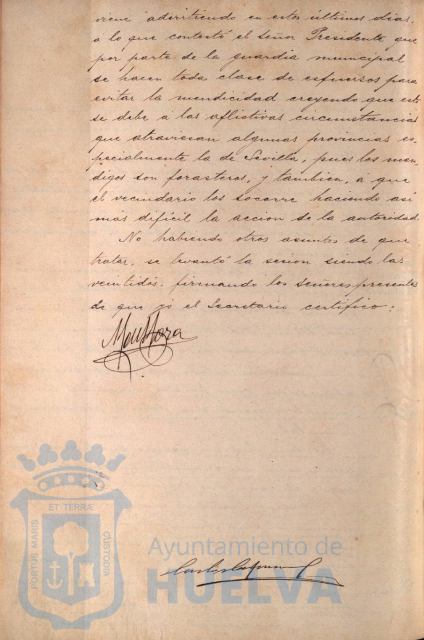 viene advirtiendo en estos últimos dias.
a lo que contestó el Señor Presidente que
por parte de la guardia municipal
se hacen toda clase de esfuerzos para
evitar la mendicidad creyendo que esto
se debe á las aflictivas circunstancias
que atraviesan algunas provincias es-
pecialmente la de Sevilla, pues los men-
digos son forasteros, y tambien, a que
el vecindario los socorre haciendo asi
mas dificil la accion de la autoridad.
No habiendo otros asuntos de que
tratar, se levantó la sesion siendo las
veintidos, firmando los señores presentes
de que yó el Secretario certifico:
PORTUS MARIS
ET TERRÆ
CUSTODIA
Ayuntamiento de
HUELVA